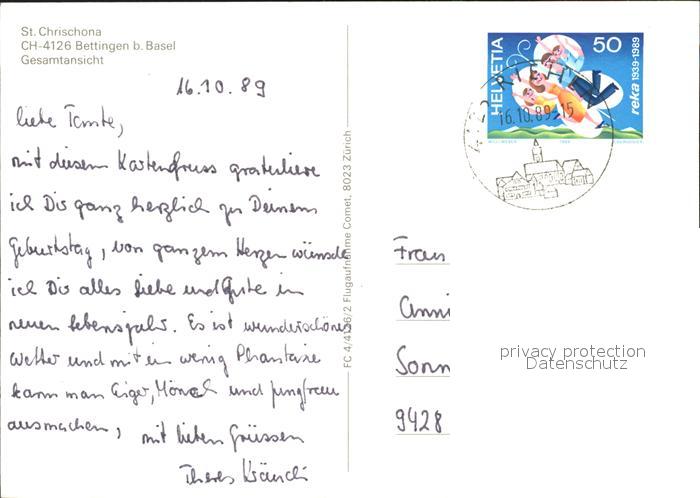 St. Chrischona
CH-4126 Bettingen b. Basel
Gesamtansicht
16.10.89
liebe Tante,
mit diesem Kartengruss gratuliere
ich Dir ganz herzlich zu Deinem
Geburtstag, von ganzem Herzen wünsche
ich Dir alles Liebe und Gute im
neuen Lebensjahr. Es ist wunderschönes
Wetter und mit ein wenig Phantasie
kann man Eiger, Mönch und Jungfrau
ausmachen,
mit lieben Grüssen
Theres
FC 4/4126/2 Flugaufnahme Comet, 8023 Zürich
HELVETIA
50
reka 1939-1989
16.10.89-15
Frau
Anni
Sonn
9428
privacy protection
Datenschutz